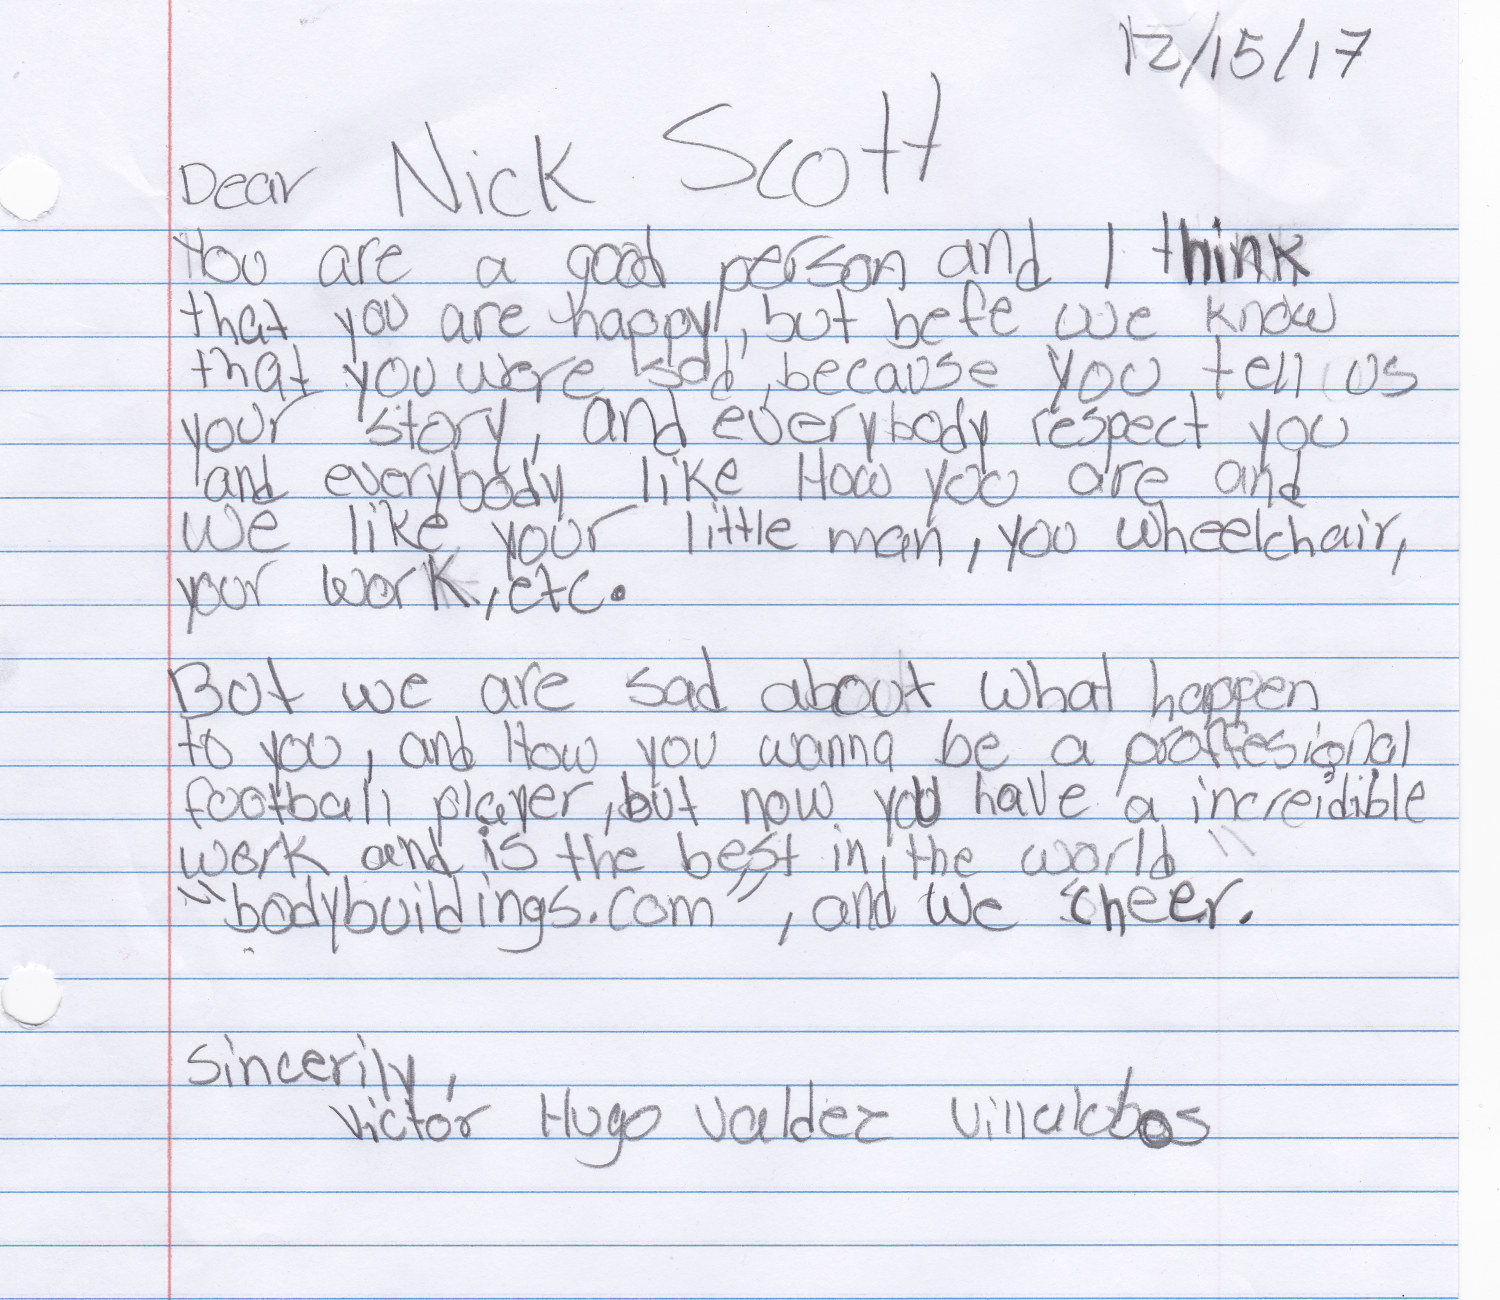 12/15/17
Dear Nick Scott
You are a good person and I think
that you are happy, but befe we know
that you were sad, because you tell us
your story, and everybody respect you
and everybody like How you are and
we like your little man, you wheelchair,
your work, etc.
But we are sad about what happen
to you, and How you wanna be a proffesional
football player, but now you have a increidible
work and is the best in the world
"bodybuildings.com", and we cheer.
Sincerily,
Victor Hugo Valdez Villalobos